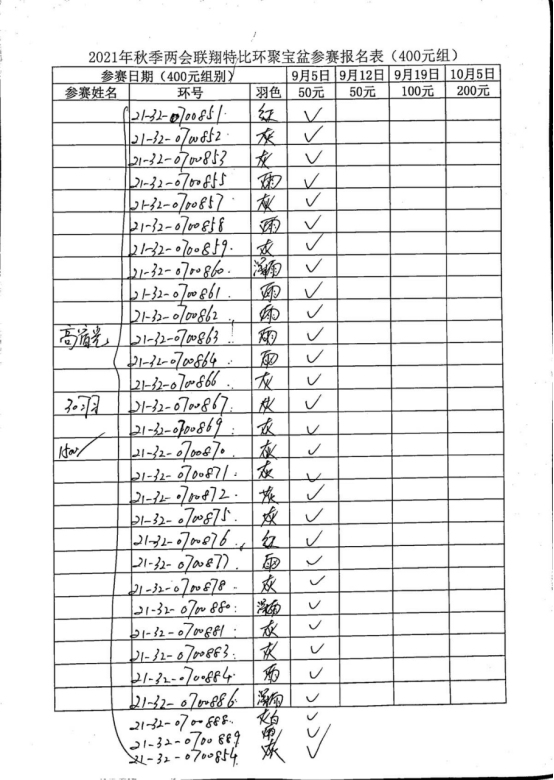 2021年秋季两会联翔特比环聚宝盆参赛报名表（400元组）
参赛日期（400元组别） 9月5日 9月12日 9月19日 10月5日
参赛姓名 环号 羽色 50元 50元 100元 200元
21-32-0700851 红 ✓
21-32-0700852 灰 ✓
21-32-0700853 灰 ✓
21-32-0700855 雨 ✓
21-32-0700857 灰 ✓
21-32-0700858 雨 ✓
21-32-0700859 灰 ✓
21-32-0700860 深雨 ✓
21-32-0700861 雨 ✓
21-32-0700862 雨 ✓
21-32-0700863 雨 ✓
21-32-0700864 雨 ✓
21-32-0700866 灰 ✓
30羽 21-32-0700867 灰 ✓
21-32-0700869 灰 ✓
1500 21-32-0700870 灰 ✓
21-32-0700871 灰 ✓
21-32-0700872 灰 ✓
21-32-0700875 灰 ✓
21-32-0700876 红 ✓
21-32-0700877 雨 ✓
21-32-0700878 灰 ✓
21-32-0700880 深雨 ✓
21-32-0700881 灰 ✓
21-32-0700883 灰 ✓
21-32-0700884 雨 ✓
21-32-0700886 深雨 ✓
21-32-0700888 灰白 ✓
21-32-0700889 雨 ✓
21-32-0700854 灰 ✓